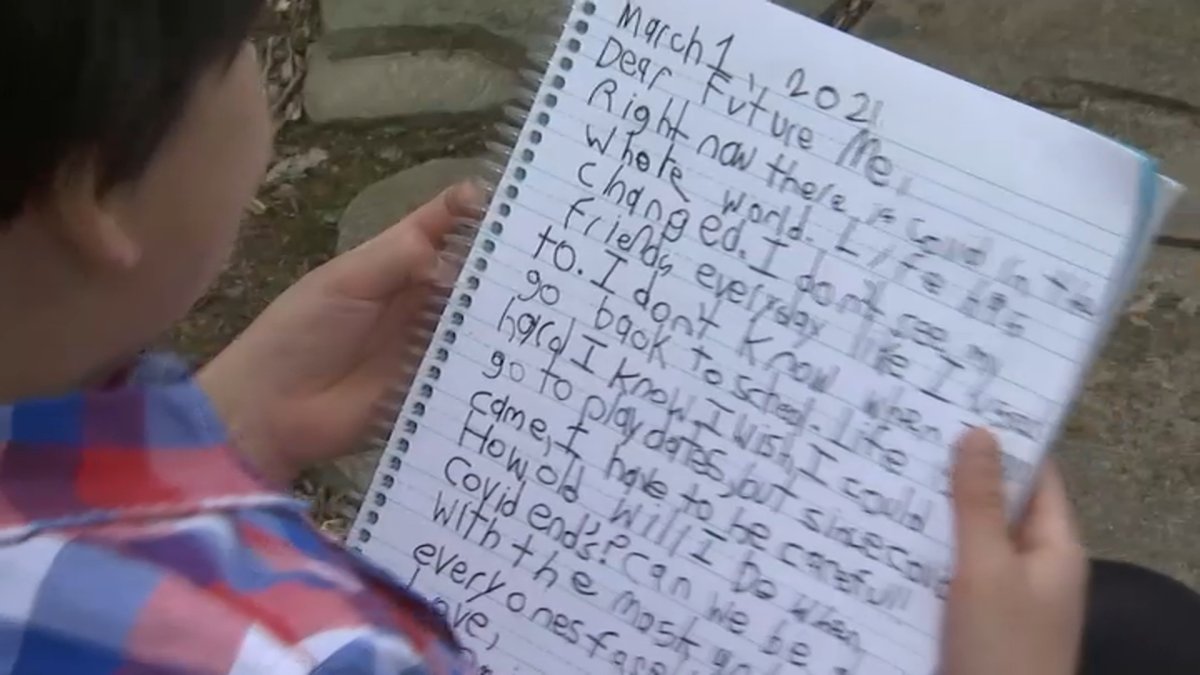 March 1, 2021
Dear Future Me,
Right now there is Covid in the
whole world. Life has
changed. I dont see my
friends everyday like I used
to. I don't know when I
go back to school. Life is
hard I know I wish I could
go to play dates, but since covid
came, I have to be carefull
How old will I be when
Covid ends? Can we be
with the mask
everyones face
Love,